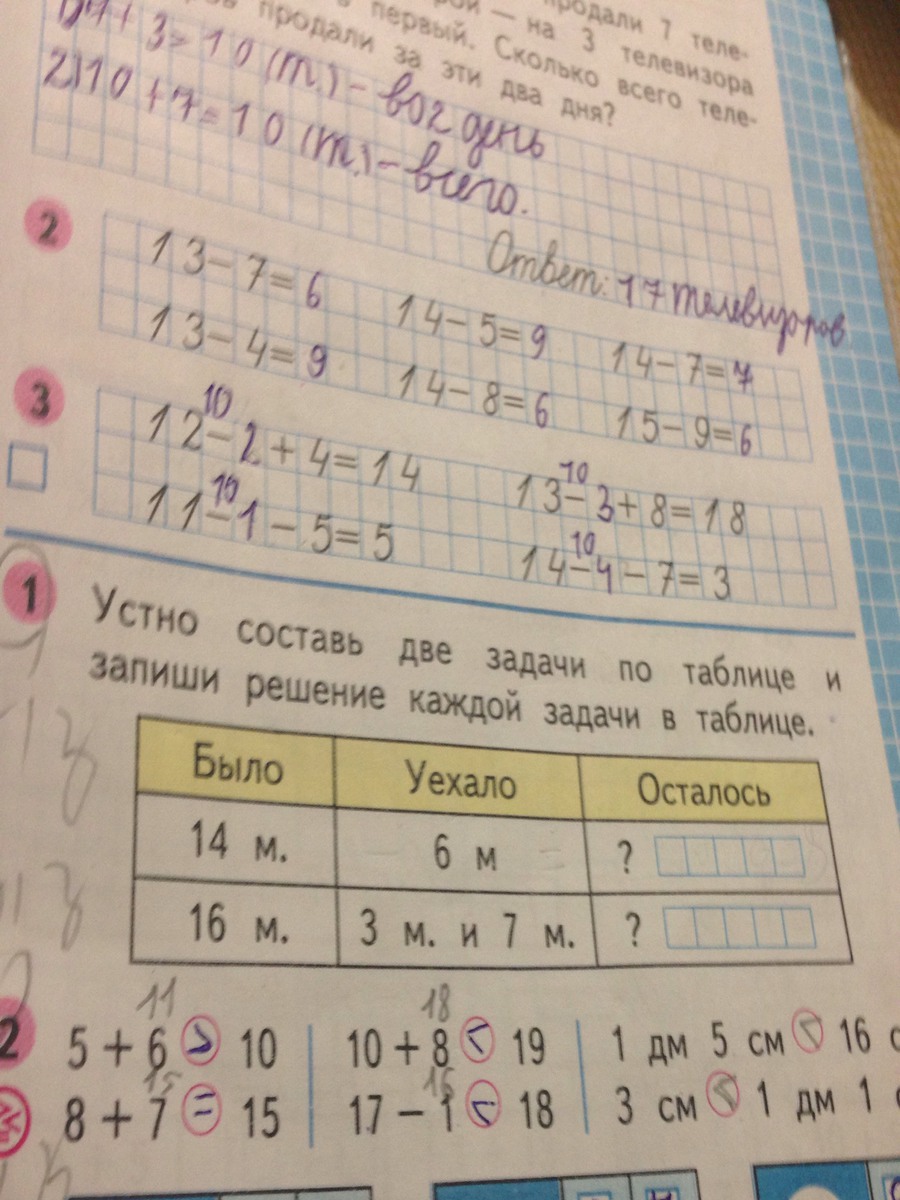 продали 7 теле-
— на 3 телевизора
первый. Сколько всего теле-
продали за эти два дня?
7+3=10 (т.) – во 2 день
2) 10+7=10 (т.) – всего.
Ответ: 17 телевизоров
2
13-7=6 14-5=9 14-7=7
13-4=9 14-8=6 15-9=6
3
10 10
12-2+4=14 13-3+8=18
10 10
11-1-5=5 14-4-7=3
1
Устно составь две задачи по таблице и
запиши решение каждой задачи в таблице.
Было Уехало Осталось
14 м. 6 м ?
16 м. 3 м. и 7 м. ?
11 18
2 5+6 > 10 10+8 < 19 1 дм 5 см < 16 с
15 16
8+7 = 15 17-1 < 18 3 см < 1 дм 1